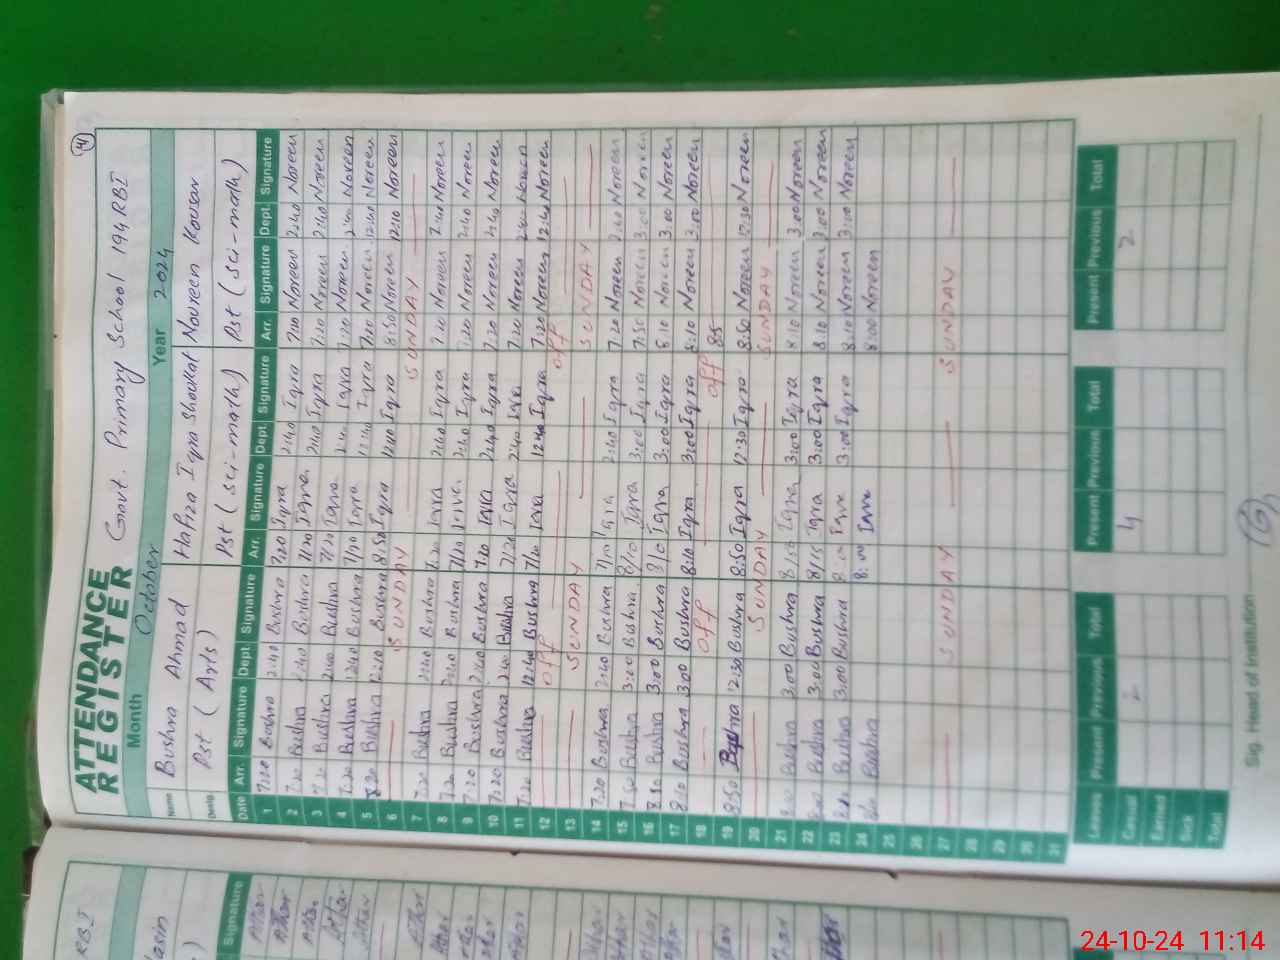 41
ATTENDANCE
REGISTER
Govt. Primary School 194 RBI
Month October Year 2024
Name Bushra Ahmad Hafiza Iqra Shoukat Noureen Kousar
Pst (Arts) Pst (sci-math) Pst (sci-math)
Date Arr. Signature Dept. Signature Arr. Signature Dept. Signature Arr. Signature Dept. Signature
1 7:20 Bushra 2:40 Bushra 7:20 Iqra 2:40 Iqra 7:20 Noreen 2:40 Noreen
2 7:20 Bushra 2:40 Bushra 7/20 Iqra 2:40 Iqra 7:20 Noreen 2:40 Noreen
3 7:20 Bushra 2:40 Bushra 7/20 Iqra 2:40 Iqra 7:20 Noreen 2:40 Noreen
4 7:20 Bushra 12:40 Bushra 7/20 Iqra 12:40 Iqra 7:20 Noreen 12:40 Noreen
5 8:20 Bushra 12:10 Bushra 8:50 Iqra 12:10 Iqra 8:50 Noreen 12:10 Noreen
6 SUNDAY SUNDAY
7 7:20 Bushra 2:40 Bushra 7:20 Iqra 2:40 Iqra 7:20 Noreen 2:40 Noreen
8 7:20 Bushra 2:40 Bushra 7/20 2:40 Iqra 7:20 Noreen 2:40 Noreen
9 7:20 Bushra 2:40 Bushra 7:20 Iqra 2:40 Iqra 7:20 Noreen 2:40 Noreen
10 7:20 Bushra 2:40 Bushra 7/20 Iqra 2:40 Iqra 7:20 Noreen 2:40 Noreen
11 7:20 Bushra 12:40 Bushra 7/20 Iqra 12:40 Iqra 7:20 Noreen 12:40 Noreen
12 off off
13 SUNDAY SUNDAY
14 7:20 Bushra 2:40 Bushra Iqra 2:40 Iqra 7:20 Noreen 2:40 Noreen
15 7:50 Bushra 3:00 Bushra 8/10 Iqra 3:00 Iqra 7:50 Noreen 3:00 Noreen
16 8:50 Bushra 3:00 Bushra 8/10 Iqra 3:00 Iqra 8:10 Noreen 3:00 Noreen
17 8:10 Bushra 3:00 Bushra 8:10 Iqra 3:00 Iqra 8:10 Noreen 3:00 Noreen
18 off off 85
19 8:50 Bushra 12:30 Bushra 8:50 Iqra 12:30 Iqra 8:50 Noreen 12:30 Noreen
20 SUNDAY SUNDAY
21 Bushra 3:00 Bushra Iqra 3:00 Iqra 8:10 Noreen 3:00 Noreen
22 Bushra 3:00 Bushra Iqra 3:00 Iqra 8:10 Noreen 3:00 Noreen
23 Bushra 3:00 Bushra Iqra 3:00 Iqra 8:10 Noreen 3:00 Noreen
24 Bushra 8:00 Iqra 8:00 Noreen
25
26
27 SUNDAY SUNDAY SUNDAY
28
29
30
31
Leaves Present Previous Total Present Previous Total Present Previous Total
Casual 2 4 2
Earned
Sick
Total
Sig. Head of Institution
RBI
Signature
Athar
24-10-24 11:14